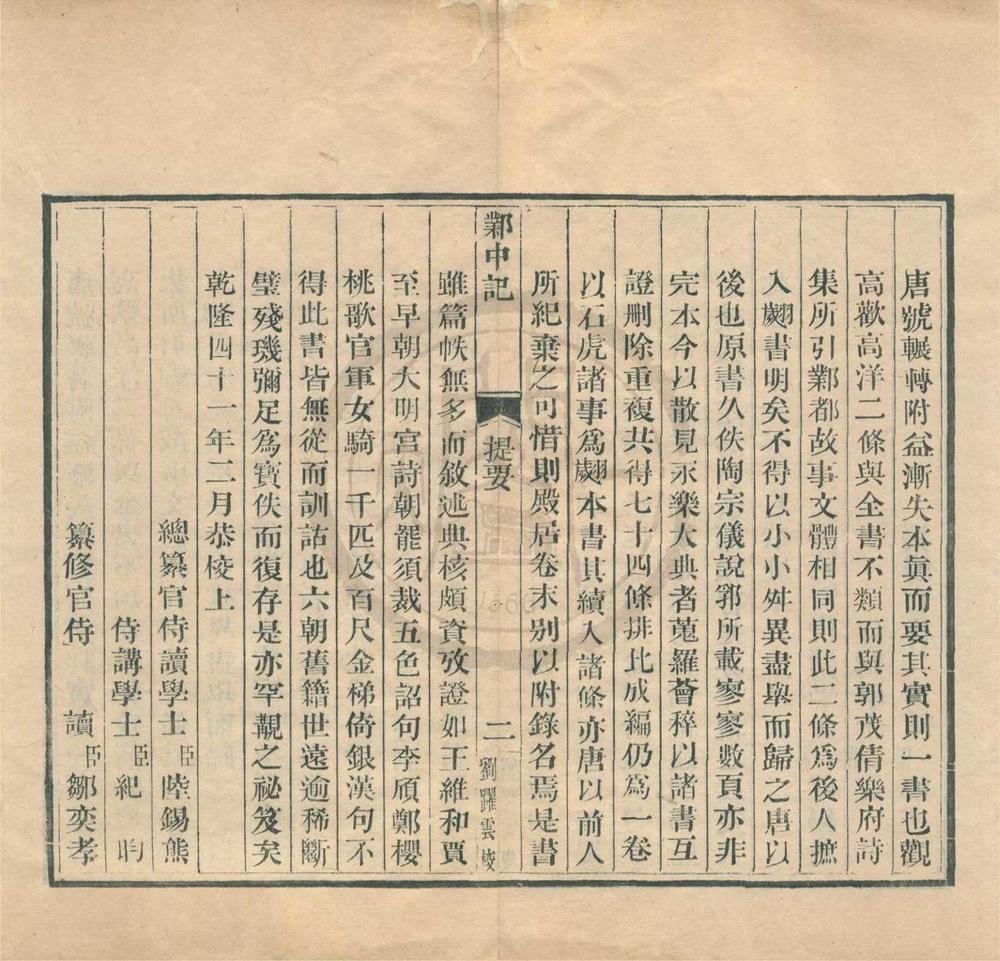 唐號輾轉附益漸失本真而要其實則一書也觀
高歡高洋二條與全書不類而與郭茂倩樂府詩
集所引鄴都故事文體相同則此二條爲後人摭
入翽書明矣不得以小小舛異盡舉而歸之唐以
後也原書久佚陶宗儀說郛所載寥寥數頁亦非
完本今以散見永樂大典者蒐羅薈稡以諸書互
證刪除重複共得七十四條排比成編仍爲一卷
以石虎諸事爲翽本書其續入諸條亦唐以前人
所紀棄之可惜則殿居卷末别以附錄名焉是書
鄴中記
提要
二
劉躍雲校
雖篇帙無多而敘述典核頗資攷證如王維和賈
至早朝大明宮詩朝罷須裁五色詔句李頎鄭櫻
桃歌官軍女騎一千匹及百尺金梯倚銀漢句不
得此書皆無從而訓詁也六朝舊籍世遠逾稀斷
璧殘璣彌足爲寶佚而復存是亦罕覯之祕笈矣
乾隆四十一年二月恭校上
總纂官侍讀學士臣陸錫熊
侍講學士臣紀昀
纂修官侍讀臣鄒奕孝